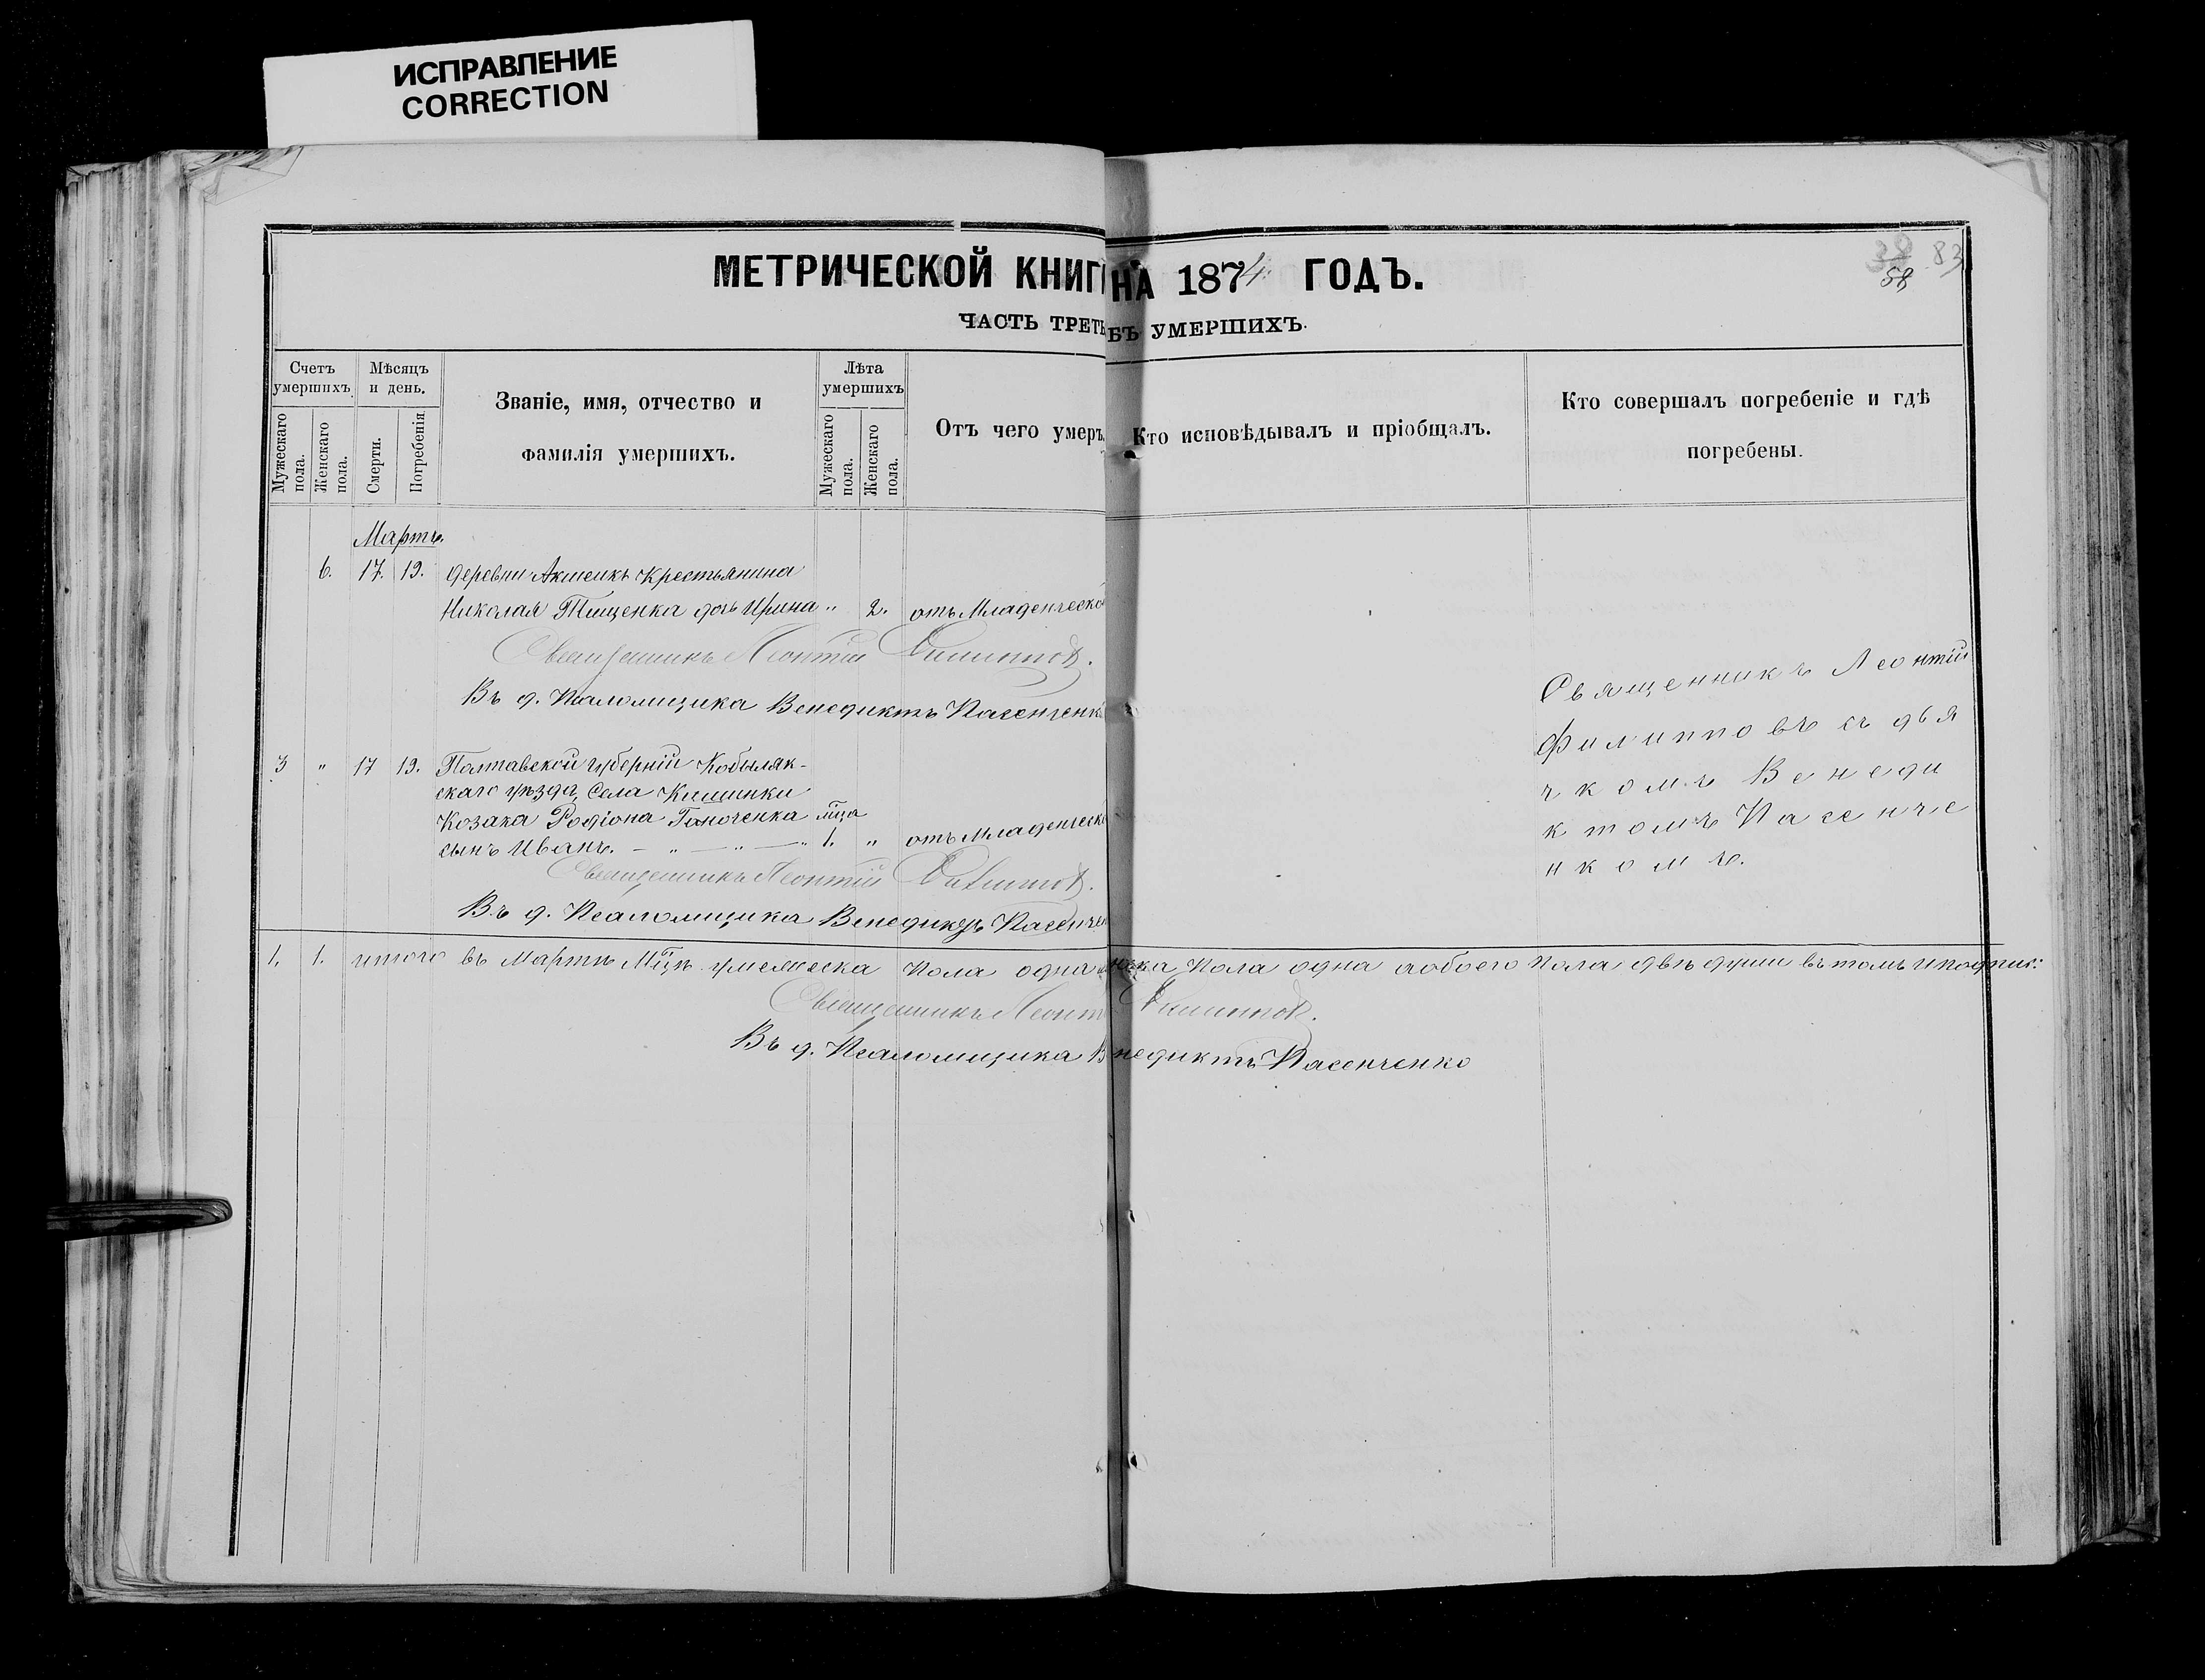 ИСПРАВЛЕНИЕ
CORRECTION
МЕТРИЧЕСКОЙ КНИГ НА 1874 ГОДЪ.
38 83
58
ЧАСТЬ ТРЕТЬ БЪ УМЕРШИХЪ.
Счетъ умершихъ.
Мужескаго пола.
Женскаго пола.
Мѣсяцъ и день.
Смерти.
Погребенія
Званіе, имя, отчество и
фамилія умершихъ.
Лѣта умершихъ
Мужескаго пола.
Женскаго пола.
Отъ чего умеръ.
Кто исповѣдывалъ и пріобщалъ.
Кто совершалъ погребеніе и гдѣ
погребены.
Мартъ.
6. 17. 19. деревни Крестьянина
Николая Тищенка дочь Ирина " 2. отъ Младенческо
Священникъ Леонтій Филиппов.
Въ д. Псаломщика Венедиктъ Пасенченк
3 " 17 19. Полтавской губерніи Кобыляк-
скаго уѣзда, Села Кишинки
Козака Родіона мца
сынъ Иванъ. — " — " — " 1. " отъ Младенческо
Священникъ Леонтій Филиппов.
Въ д. Псаломщика Венедиктъ Пасенчен
Священникъ Леонтій
Филипповъ съ дья
чкомъ Венеди
ктомъ Пасенче
нкомъ.
1. 1. итого въ Мартѣ Мцѣ умужеска пола одна неска пола одна аобоего пола двѣ души въ томъ иподпис:
Священникъ Леонт Филиппов.
Въ д. Псаломщика Венедиктъ Пасенченко